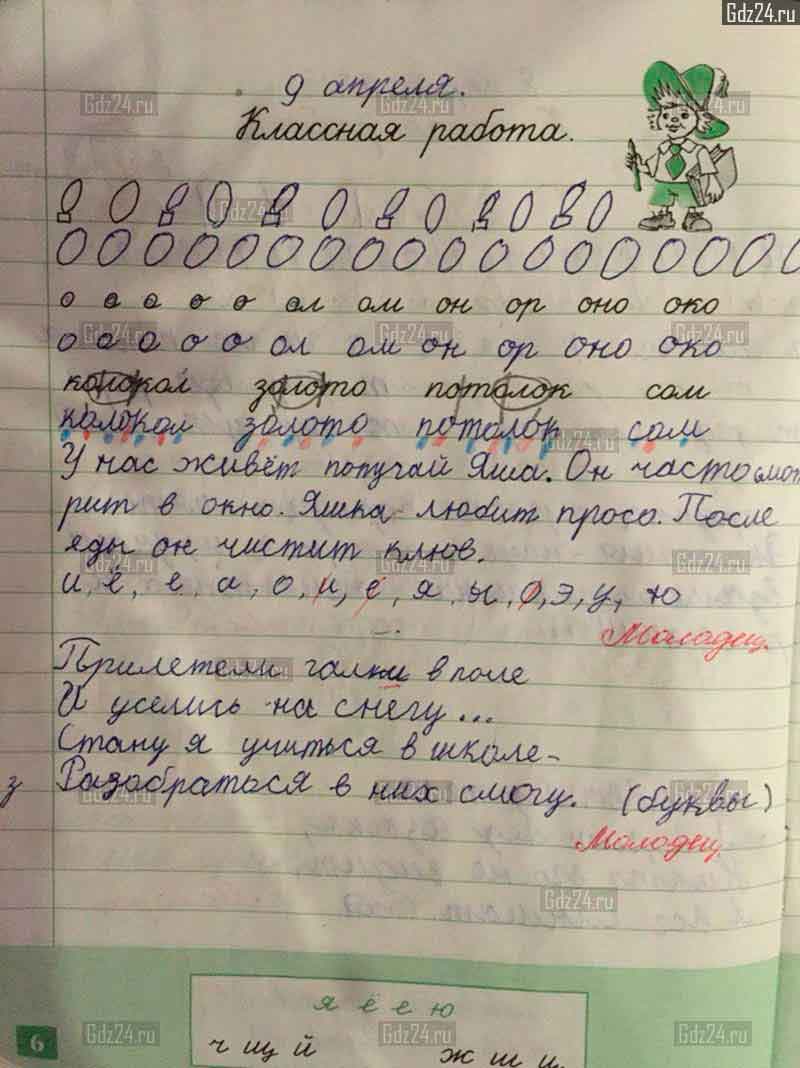 Gdz24.ru
9 апреля.
Классная работа.
о о о о о ол ом он ор оно око
о о о о о ол ом он ор оно око
колокол золото потолок сом
колокол золото потолок сом
У нас живёт попугай Яша. Он часто смот
рит в окно. Яшка любит просо. После
еды он чистит клюв.
и, ё, е, а, о, и, е, я, ы, о, э, у, ю
Молодец.
Прилетели галки в поле
И уселись на снегу...
Стану я учиться в школе-
з Разобраться в них смогу. (буквы)
Молодец.
я ё е ю
6 ч щ й ж ш ц